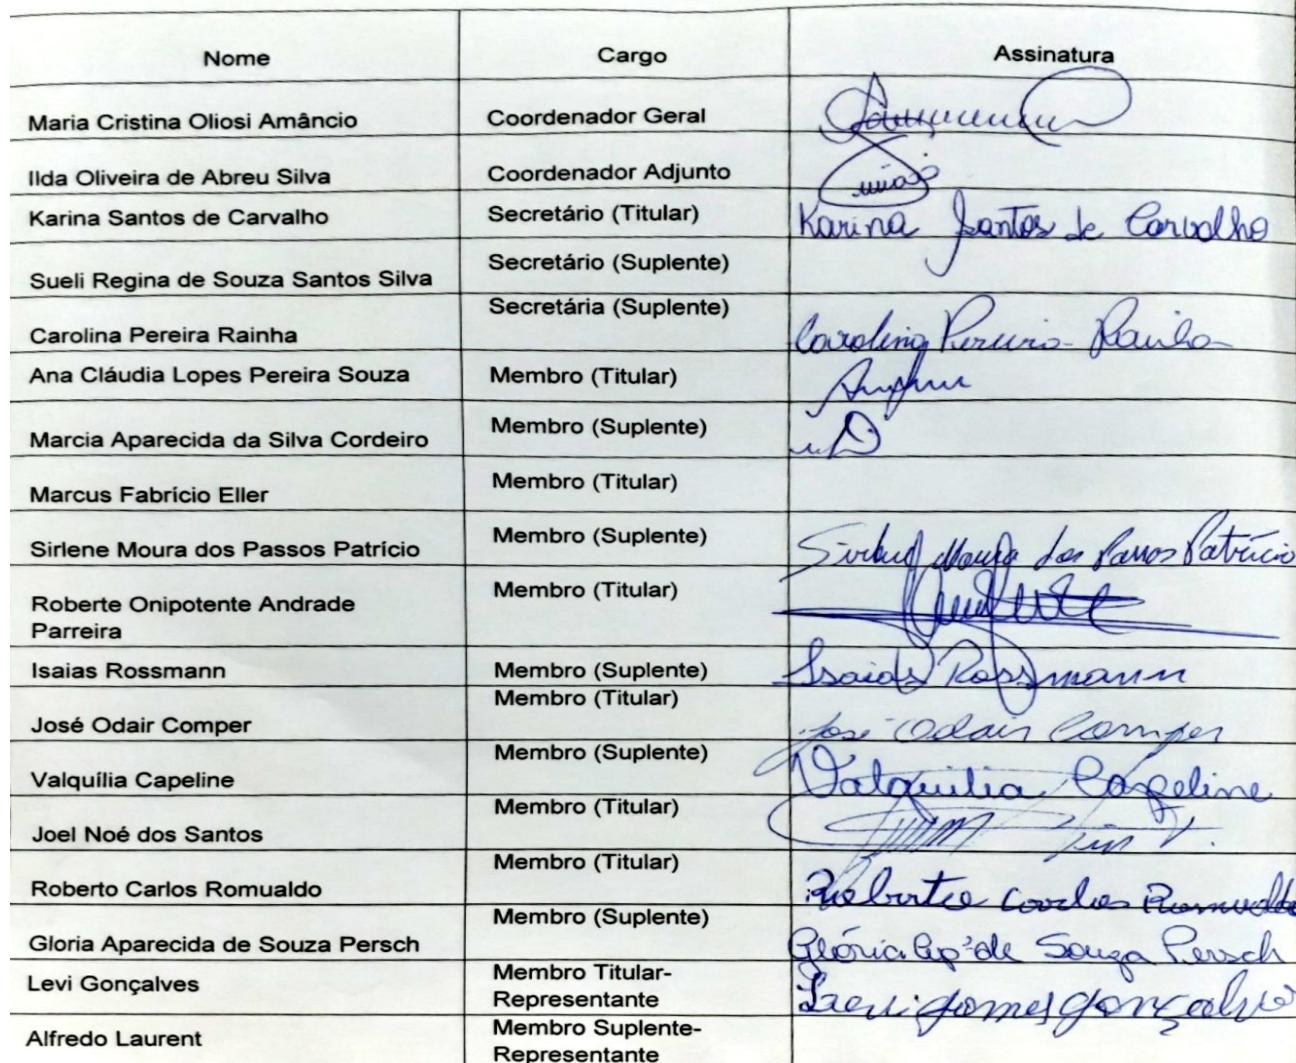 Nome Cargo Assinatura
Maria Cristina Oliosi Amâncio Coordenador Geral
Ilda Oliveira de Abreu Silva Coordenador Adjunto
Karina Santos de Carvalho Secretário (Titular) Karina Santos de Carvalho
Sueli Regina de Souza Santos Silva Secretário (Suplente)
Carolina Pereira Rainha Secretária (Suplente) Carolina Pereira Rainha
Ana Cláudia Lopes Pereira Souza Membro (Titular)
Marcia Aparecida da Silva Cordeiro Membro (Suplente)
Marcus Fabrício Eller Membro (Titular)
Sirlene Moura dos Passos Patrício Membro (Suplente) Sirlene Moura dos Passos Patrício
Roberte Onipotente Andrade Membro (Titular)
Parreira
Isaias Rossmann Membro (Suplente) Isaias Rossmann
José Odair Comper Membro (Titular) José Odair Comper
Valquília Capeline Membro (Suplente) Valquilia Capeline
Joel Noé dos Santos Membro (Titular)
Roberto Carlos Romualdo Membro (Titular) Roberto Carlos Romualdo
Gloria Aparecida de Souza Persch Membro (Suplente) Glória Ap de Souza Persch
Levi Gonçalves Membro Titular- Levi Gomes Gonçalves
Representante
Alfredo Laurent Membro Suplente-
Representante